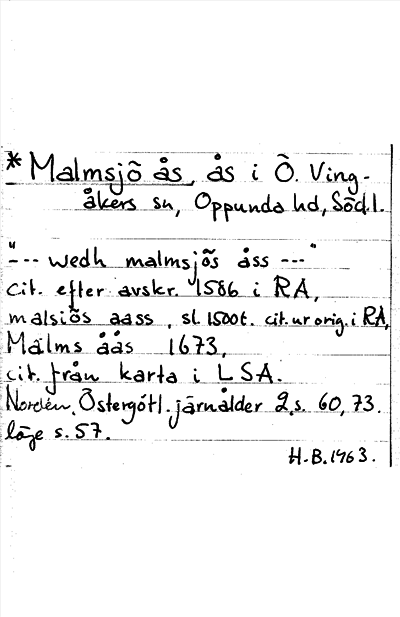 *Malmsjö ås, ås i Ö. Ving-
åkers sn, Oppunda hd, Södl.
"--- wedh malmsjös åss ---"
cit. efter avskr. 1586 i RA,
malsiös aass, sl. 1500t. cit. ur orig. i RA,
Malms åås 1673,
cit. från karta i LSA.
Nordén, Östergötl. järnålder 2, s. 60, 73.
läge s. 57.
H.B. 1963.